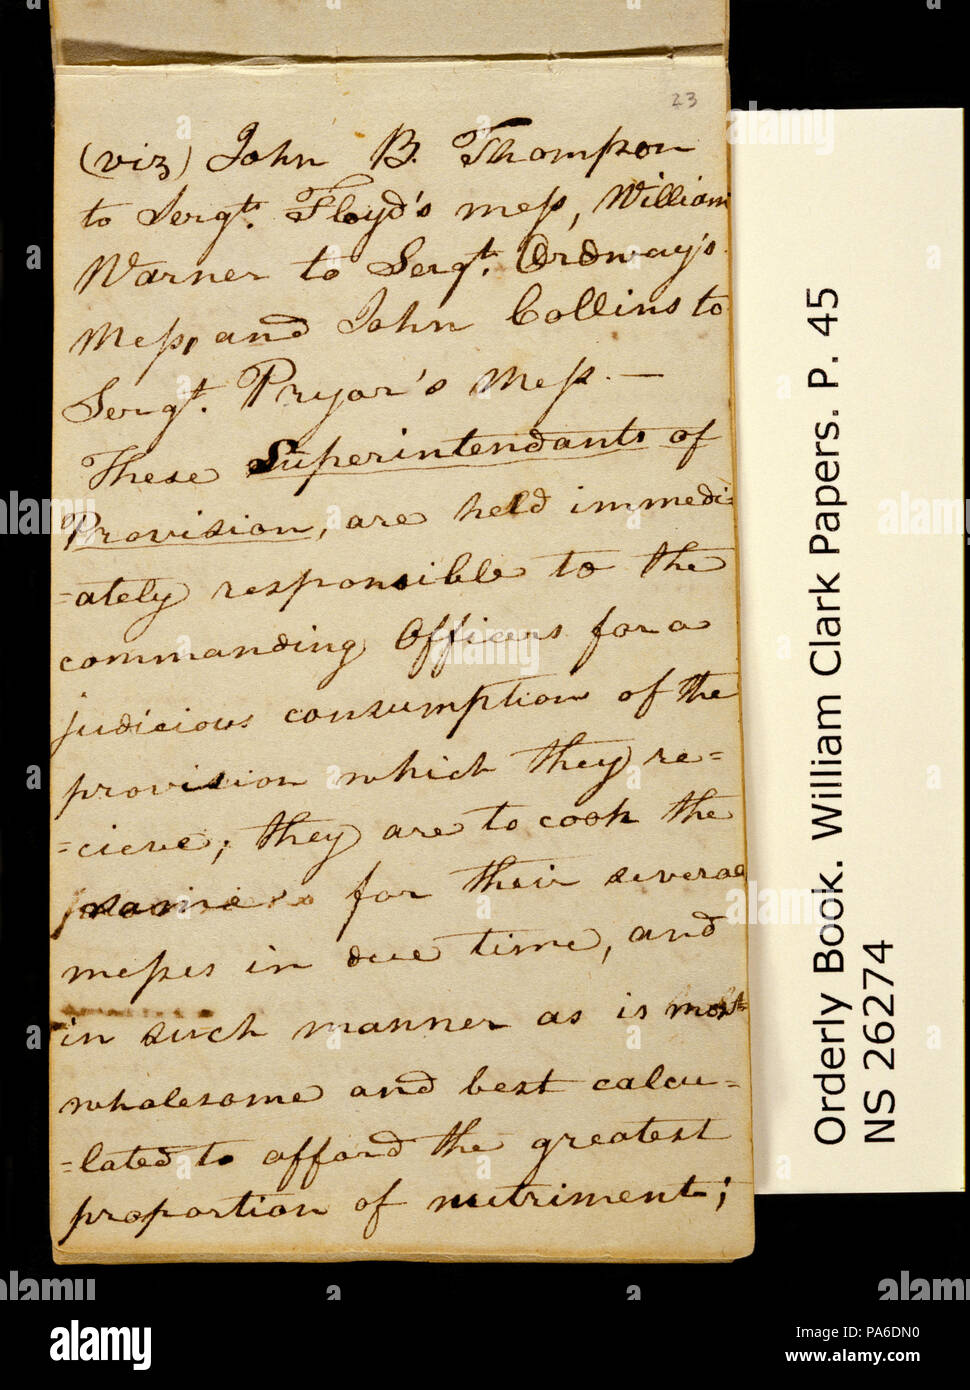 23
(viz) John B. Thompson
to Sergt. Floyd's mess, William
Warner to Sergt. Ordway's
Mess, and John Collins to
Sergt. Pryor's Mess. —
These Superintendants of
Provision, are held immedi=
=ately responsible to the
commanding Officers for a
judicious consumption of the
provision which they re=
=cieve; they are to cook the
same for their several
messes in due time, and
in such manner as is most
wholesome and best calcu=
=lated to afford the greatest
proportion of nutriment;
Orderly Book. William Clark Papers. P. 45
NS 26274
alamy
Image ID: PA6DN0
www.alamy.com